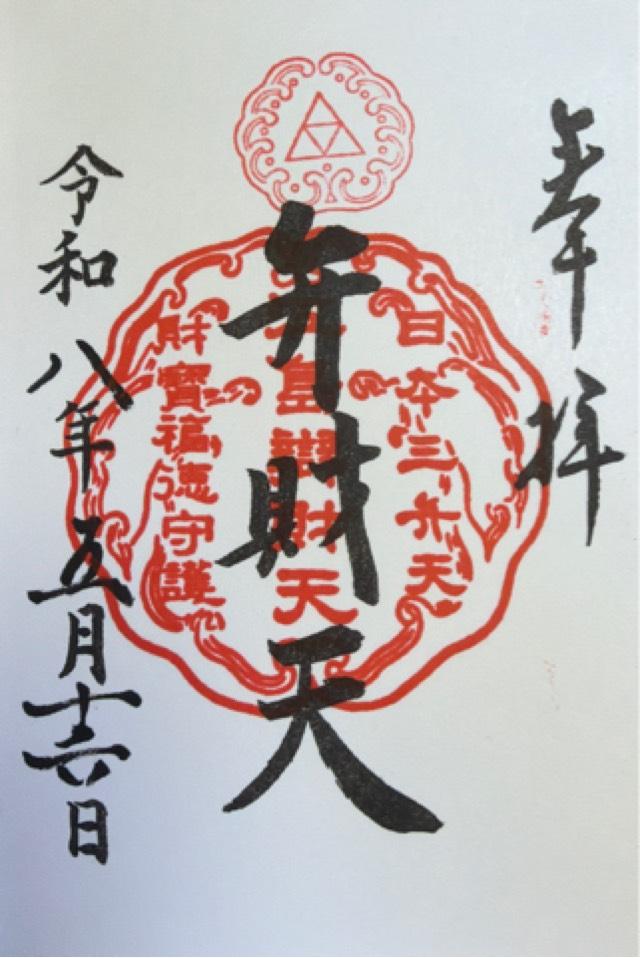 奉拝
日本三弁天
弁財天
江島辨財天
財寶福徳守護
令和八年五月十六日